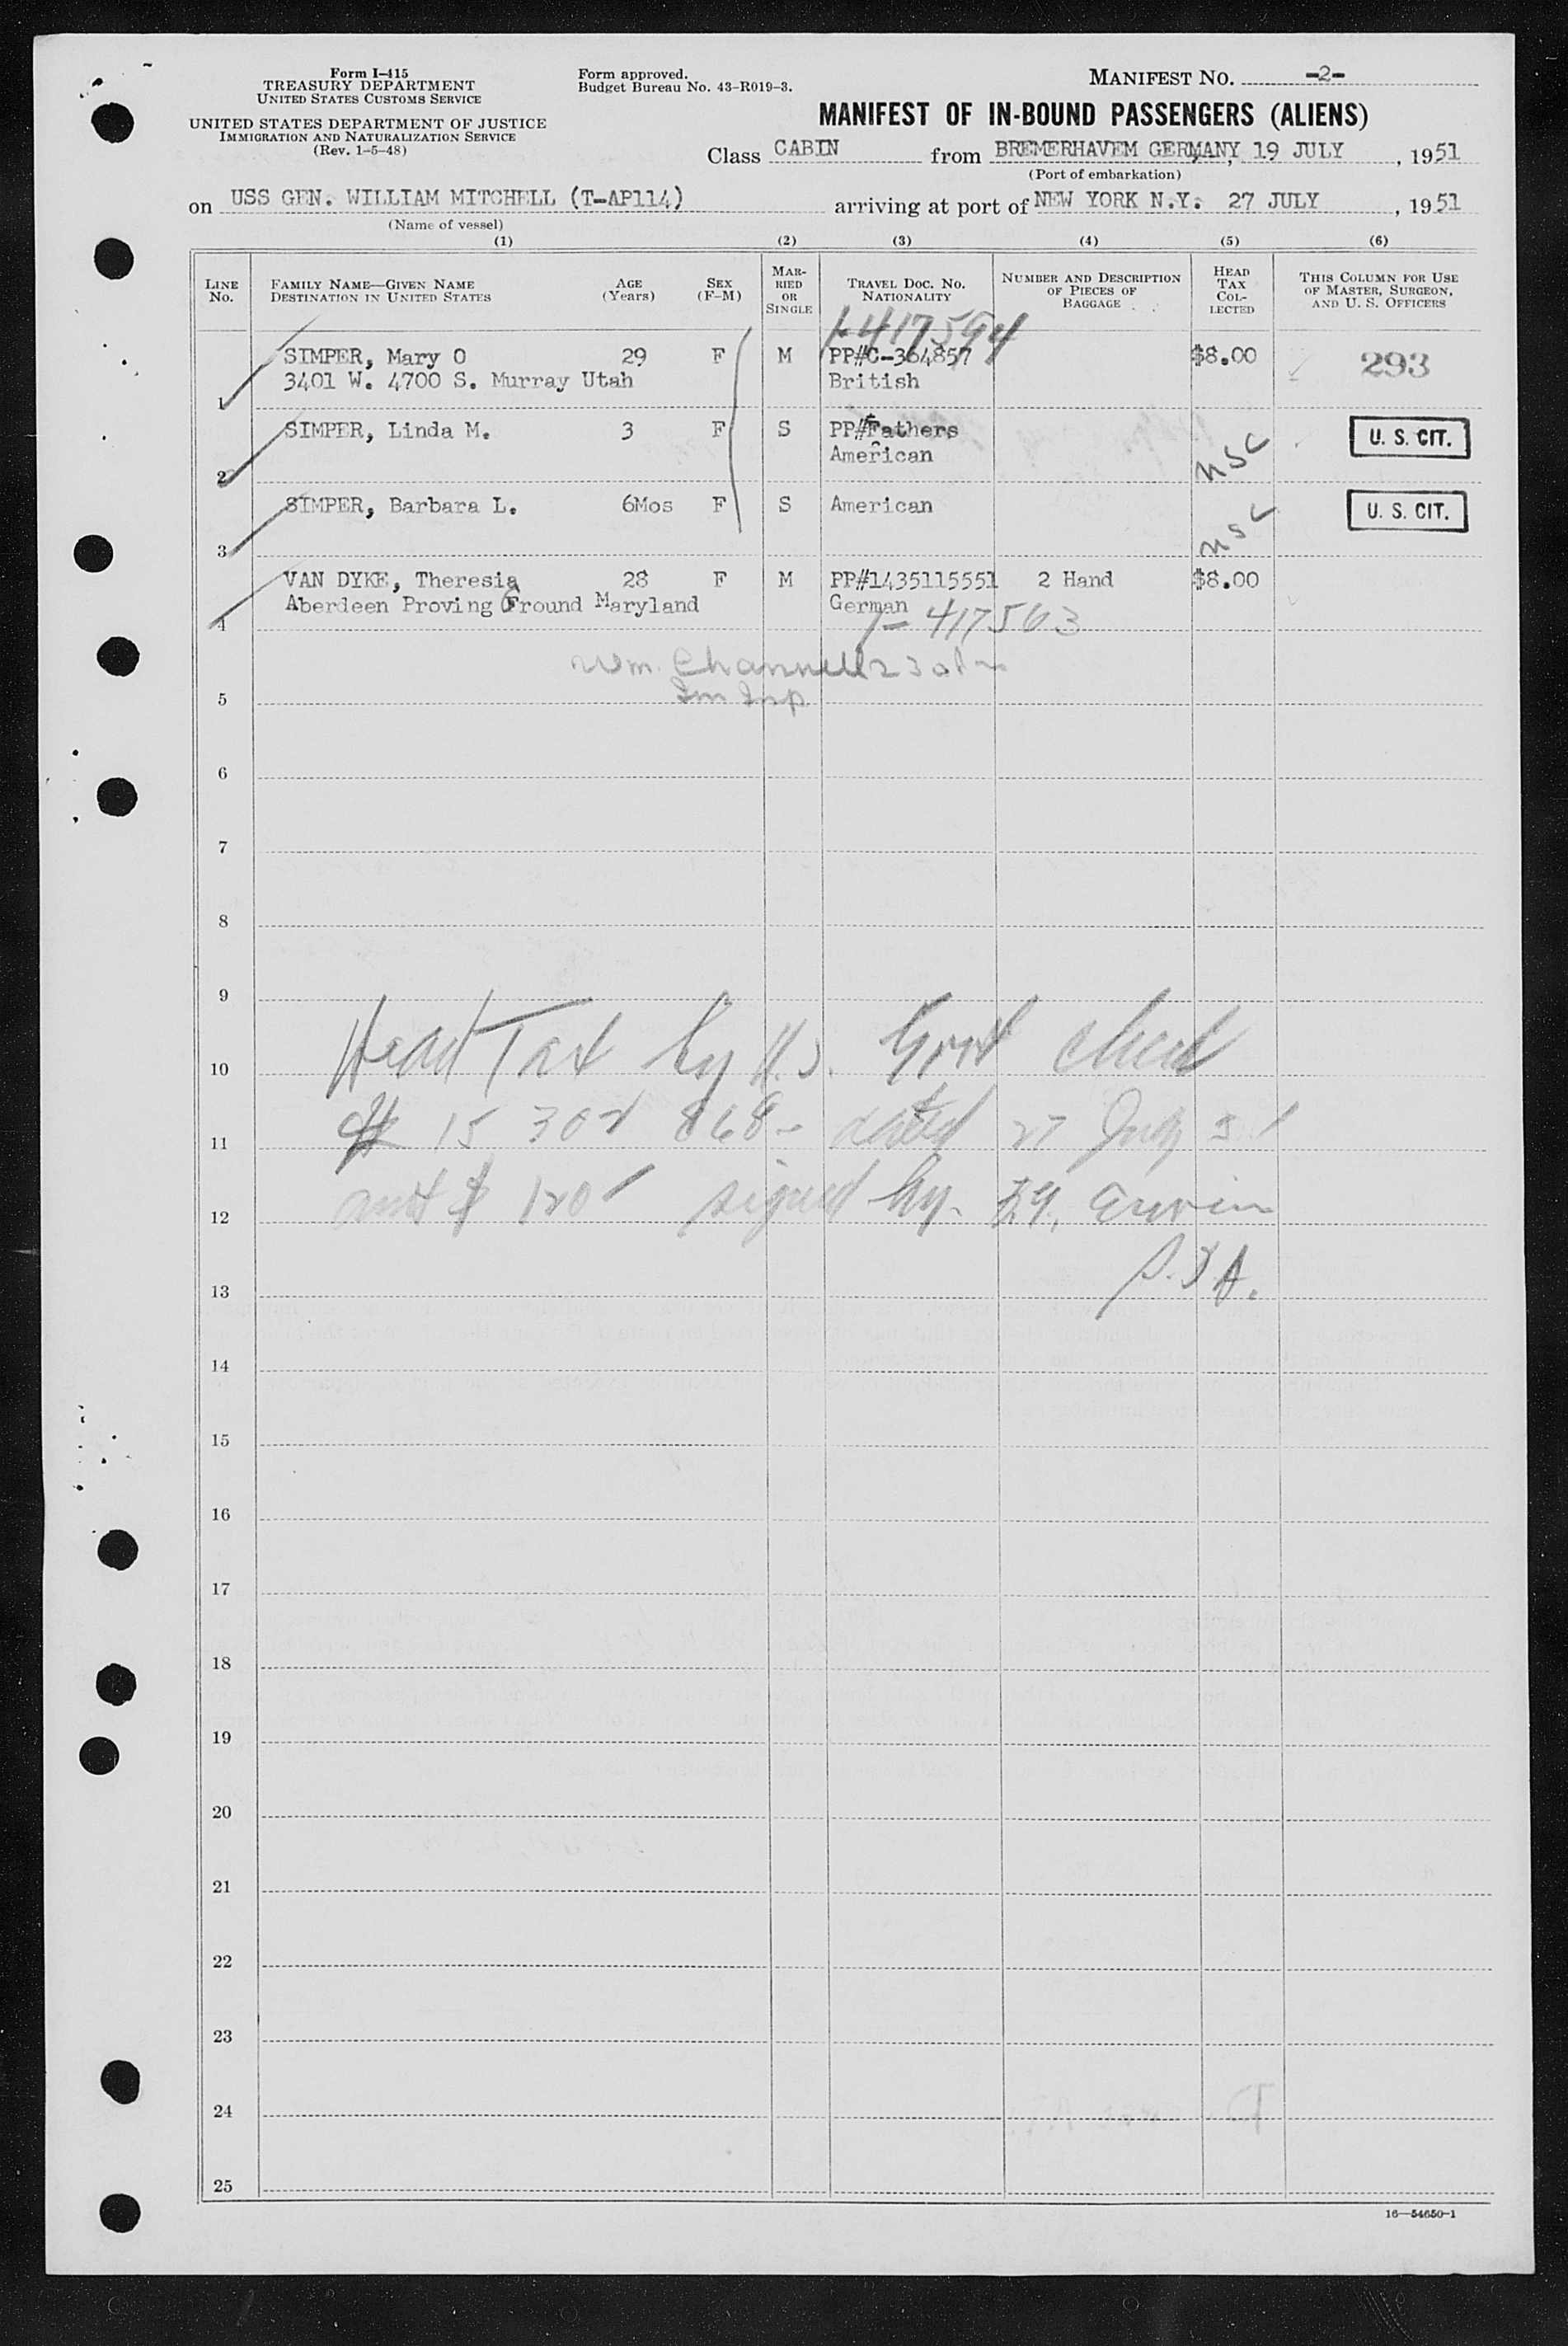 Form I-415
TREASURY DEPARTMENT
UNITED STATES CUSTOMS SERVICE
UNITED STATES DEPARTMENT OF JUSTICE
IMMIGRATION AND NATURALIZATION SERVICE
(Rev. 1-5-48)
Form approved.
Budget Bureau No. 43-R019-3.
MANIFEST NO. -2-
MANIFEST OF IN-BOUND PASSENGERS (ALIENS)
Class CABIN from BREMERHAVEM GERMANY, 19 JULY, 1951
(Port of embarkation)
on USS GEN. WILLIAM MITCHELL (T-AP114) arriving at port of NEW YORK N.Y. 27 JULY, 1951
(Name of vessel)
(1) (2) (3) (4) (5) (6)
LINE No. FAMILY NAME—GIVEN NAME DESTINATION IN UNITED STATES AGE (Years) SEX (F-M) MARRIED OR SINGLE TRAVEL DOC. NO. NATIONALITY NUMBER AND DESCRIPTION OF PIECES OF BAGGAGE HEAD TAX COLLECTED THIS COLUMN FOR USE OF MASTER, SURGEON, AND U. S. OFFICERS
417594
SIMPER, Mary O 29 F M PP#C-364857 $8.00 293
3401 W. 4700 S. Murray Utah British
1
SIMPER, Linda M. 3 F S PP#Fathers U. S. CIT.
American
2 USC
SIMPER, Barbara L. 6Mos F S American U. S. CIT.
3 USC
VAN DYKE, Theresia 28 F M PP#1435115551 2 Hand $8.00
Aberdeen Proving Ground Maryland German
4 417563
Wm. Channell
5 Im Insp
6
7
8
9
10 Head Tax by U.S. Govt check
11 # 15 302 868 - dated 27 July 51
12 amt $ 120 signed by
13
14
15
16
17
18
19
20
21
22
23
24
25
16—54650-1